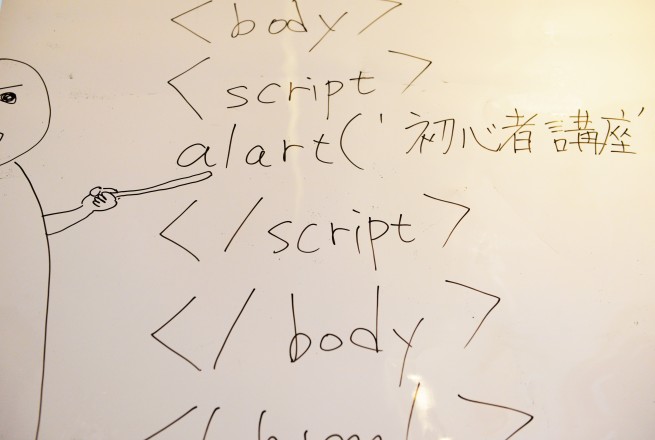 <body>
<script>
alart('初心者講座'
</script>
</body>
</html